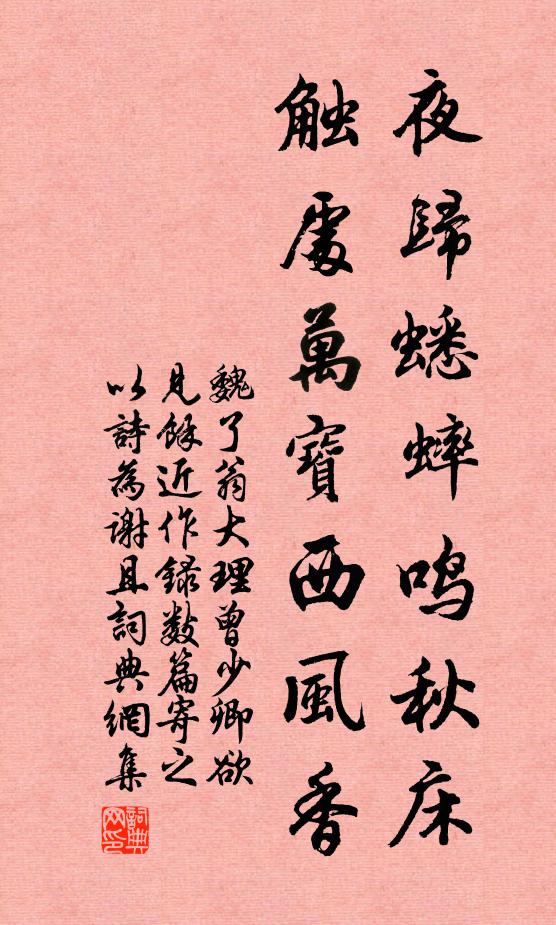 夜歸蟋蟀鸣秋床
触處萬寶西風香
魏了翁大理曾少卿欲
見餘近作録数篇寄之
以詩為谢且詞典網集
詞典
网印